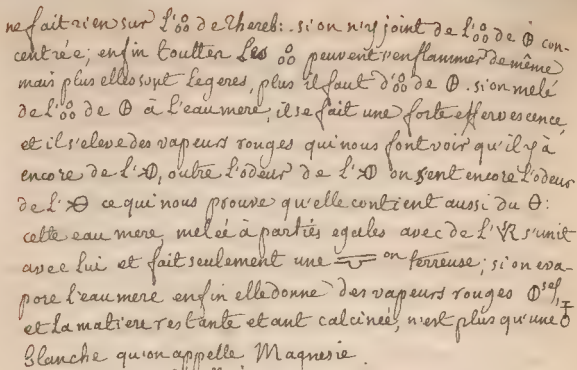 ne fait rien sur L'o°o de Thereb: si on n'y joint de L'o°o de ⦶ con-
centrée; enfin touttes Les o°o peuvent s'enflammer de même
mais plus elles sont Legeres, plus il faut d'o°o de ⦶. si on melé
de L'o°o de ⦶ à L'eau mere, il se fait une forte effervescence
et il s'eleve des vapeurs rouges qui nous font voir qu'il y à
encore de L', outre L'odeur de L' on sent encore L'odeur
de L' ce qui nous prouve qu'elle contient aussi du Ө:
cette eau mere melée à parties egales avec de L' s'unit
avec lui et fait seulement une on terreuse; si on eva-
pore L'eau mere enfin elle donne des vapeurs rouges
et la matiere restante etant calcinée, n'est plus qu'une
blanche qu'on appelle Magnesie.